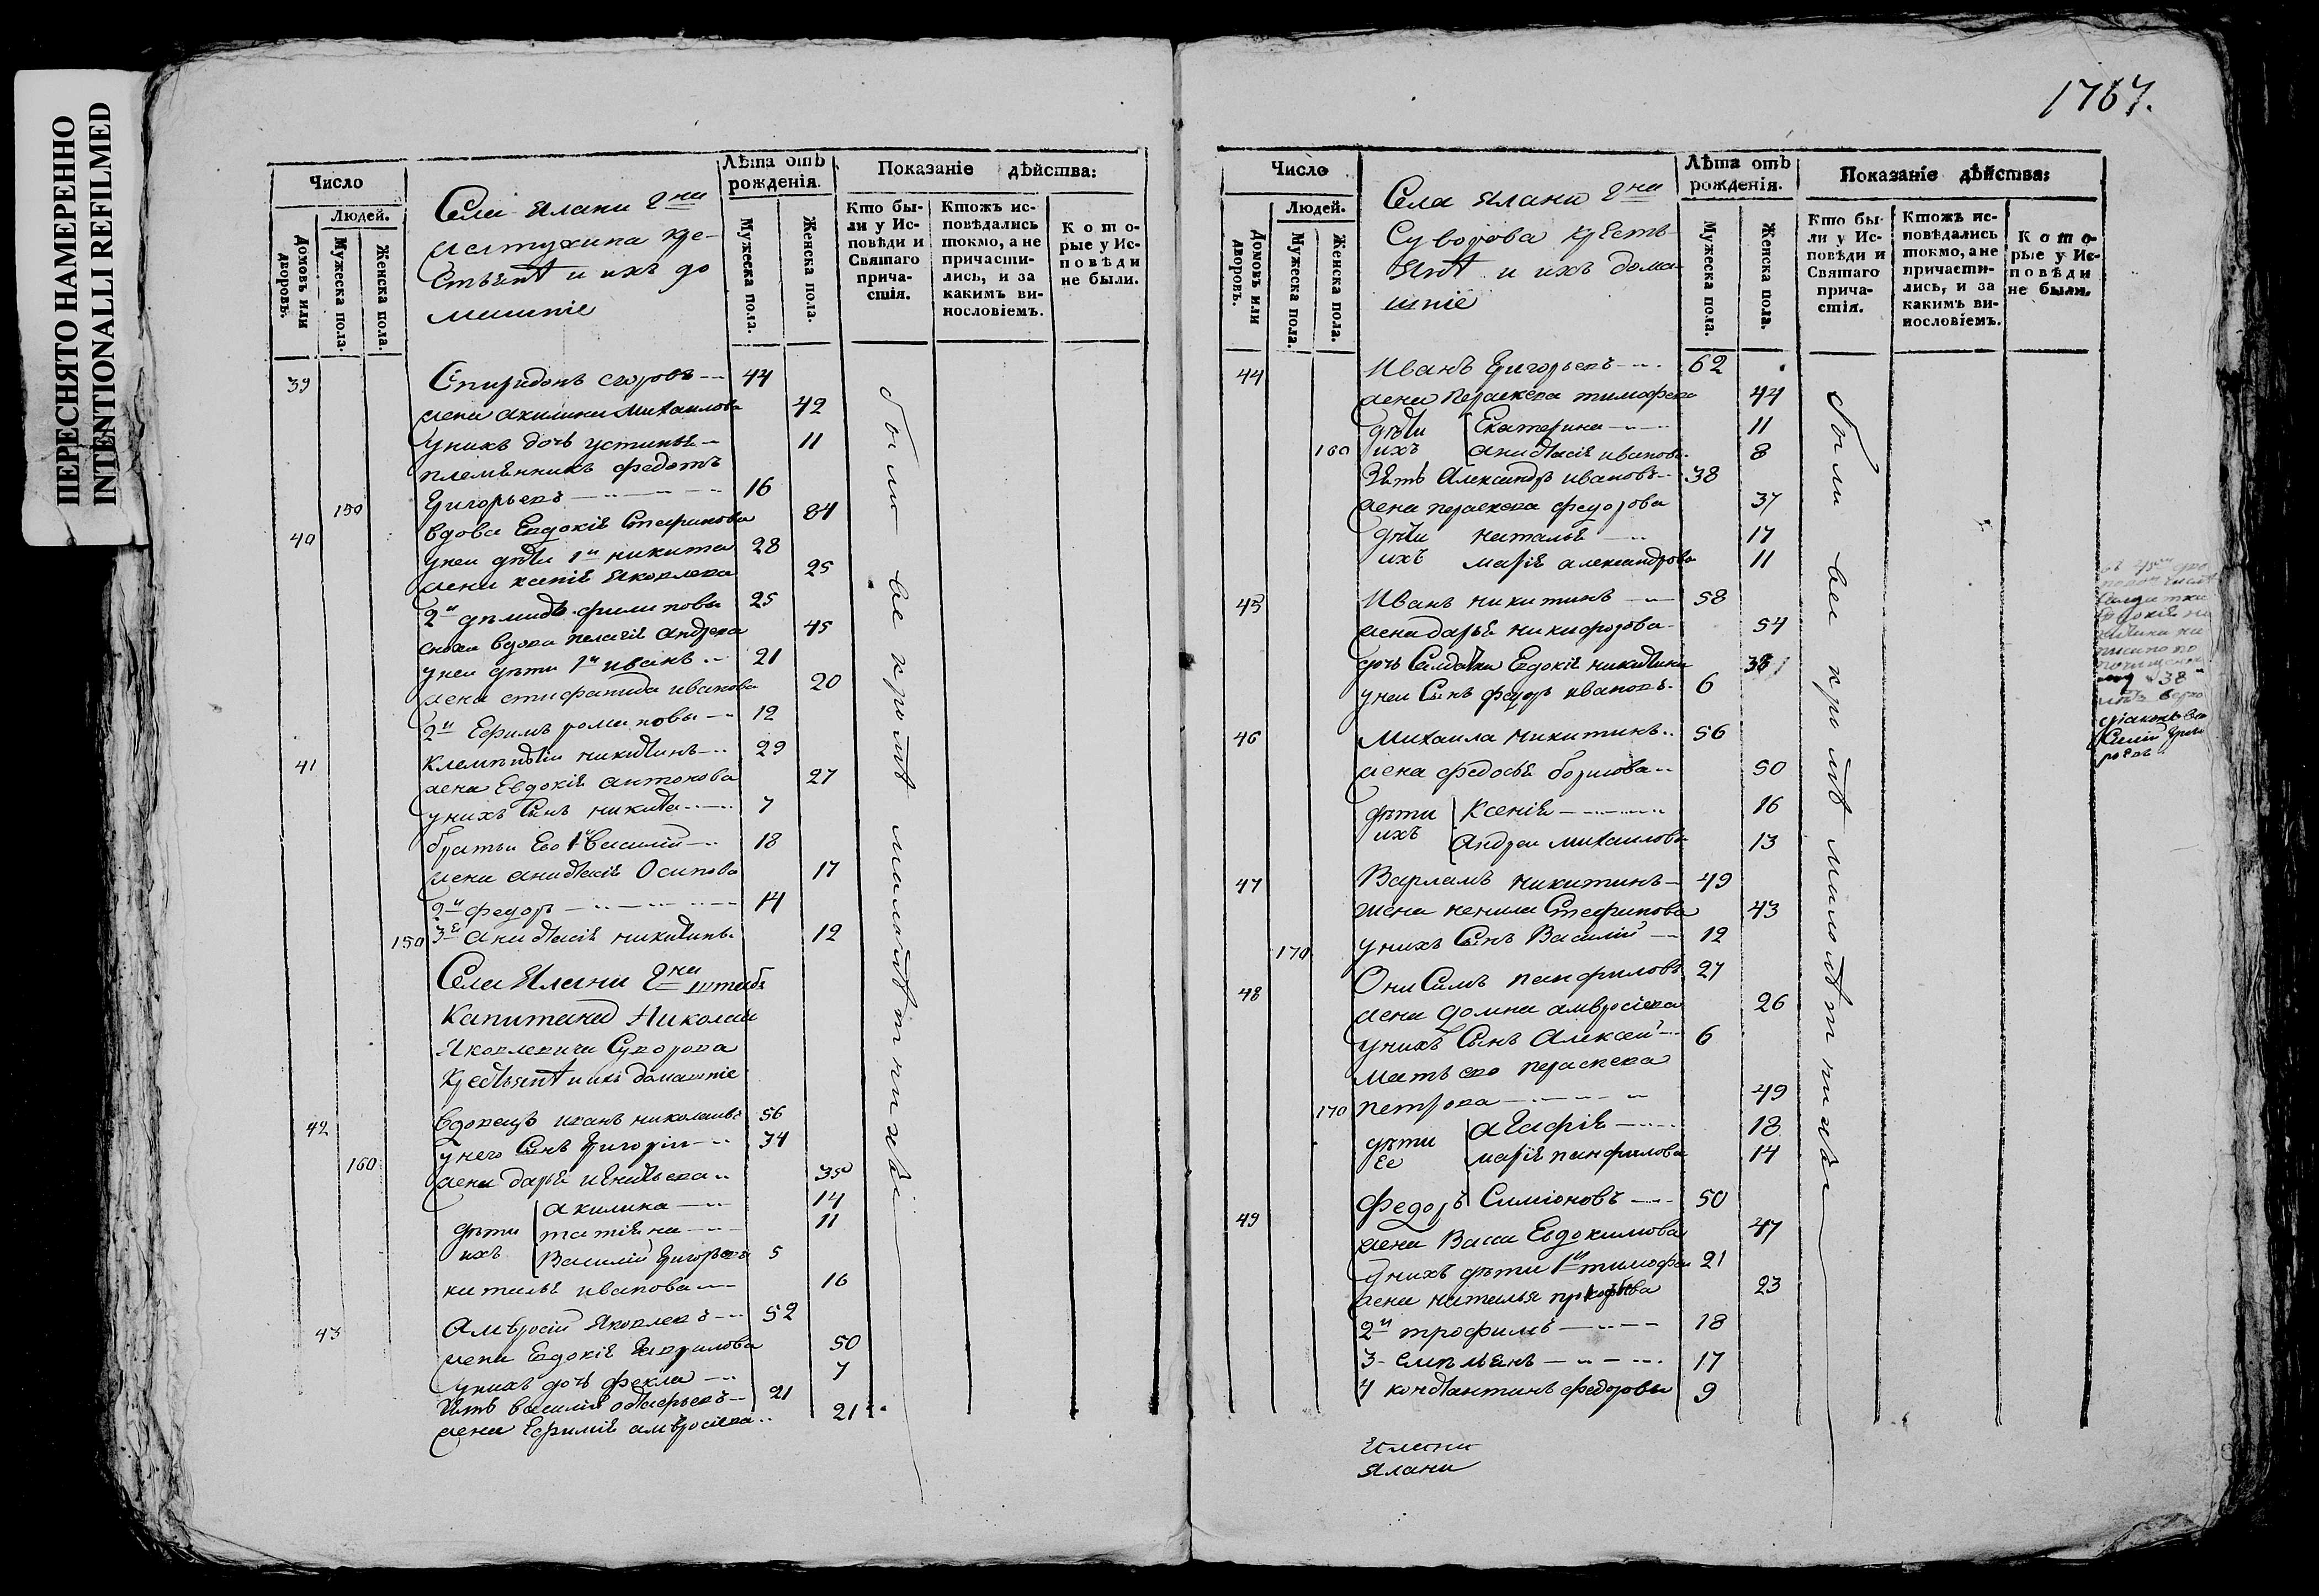 ПЕРЕСНЯТО НАМЕРЕННО
INTENTIONALLI REFILMED
Число
Людей.
Домовъ или дворовъ.
Мужеска пола.
Женска пола.
Села Елани Гна
крестьянѣ и ихъ до
машніе
Лѣта отъ рожденія.
Мужеска пола.
Женска пола.
Показаніе дѣйства:
Кто были у Исповѣди и Святаго причастія.
Ктожъ исповѣдались токмо, а не причастились, и за какимъ винословіемъ.
Которые у Исповѣди не были.
39 Спиридонъ 44
жена акилина михаилова 42
у нихъ дочь устинья 11
племянникъ федотъ
150 Григорьевъ 16
40 вдова Евдокія Стефанова 84
у неи дѣти 1й никита 28
жена ксенія Яковлева 25
2й филиповы 25
сноха вдова пелагія андреева 45
у неи дѣти 1й иванъ 21
жена иванова 20
2й Ефимъ романовы 12
41 Клементій никитинъ 29
жена Евдокія антонова 27
у нихъ сынъ никита 7
братьи Ево 1й василій 18
жена анастасія Осипова 17
2й федоръ 14
150 3е анастасія никитины 12
Села Елани Гна штабъ
Капитана Николая
Яковлевича Суворова
Крестьянѣ и ихъ домашніе
42 Вдовецъ иванъ николаевъ 56
160 у него сынъ григорій 34
жена дарья игнатьева 35
дѣти ихъ
акилина 14
татіяна 11
Василій григорьевы 5
наталья иванова 16
43 Амвросій Яковлевъ 52
жена Евдокія Гаврилова 50
у нихъ дочь фекла 7
Зять василій астафьевъ 21
жена Ефимія амвросіева 21
были все кромѣ малолѣтнихъ
1767.
Число
Людей.
Домовъ или дворовъ.
Мужеска пола.
Женска пола.
Села Елани Гна
Суворова крестьянѣ и ихъ домашніе
Лѣта отъ рожденія.
Мужеска пола.
Женска пола.
Показаніе дѣйства:
Кто были у Исповѣди и Святаго причастія.
Ктожъ исповѣдались токмо, а не причастились, и за какимъ винословіемъ.
Которые у Исповѣди не были.
44 Иванъ Григорьевъ 62
жена параскева тимофеева 44
дѣти Екатерина 11
160 ихъ анастасія иванова 8
Зять Александръ ивановъ 38
жена параскева федорова 37
дѣти наталья 17
ихъ марія александрова 11
45 Иванъ никитинъ 58
жена дарья никифорова 54
дочь Салдатка Евдокія никитина 38
у неи Сынъ федоръ ивановъ 6
46 Михаила никитинъ 56
жена федосья борисова 50
дѣти Ксенія 16
ихъ андреи михаиловы 13
47 Варламъ никитинъ 49
жена ненила Стефанова 43
170 у нихъ Сынъ Василій 12
48 Онисимъ панфиловъ 27
жена домна амвросіева 26
у нихъ Сынъ Алексеи 6
мать ево параскева
170 петрова 49
дѣти агафія 18
ее марія панфилова 14
49 Федоръ Симіоновъ 50
жена Васса Евдокимова 47
у нихъ дѣти 1й тимофеи 21
жена наталья прокофьева 23
2й трофимъ 18
3 емельянъ 17
4 константинъ федоровы 9
были все кромѣ малолѣтнихъ
Елани